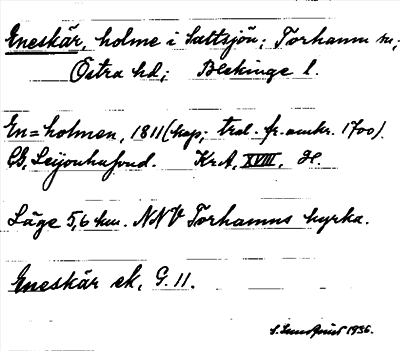 Eneskär, holme i Sattsjön; Torhamn sn;
Östra hd; Blekinge l.
En=holmen, 1811 (kop; trol. fr. omkr. 1700).
CG, Leijonhufvud. KrA, XVIII, H.
Läge 5,6 km. NNV Torhamns kyrka.
Eneskär ek. G. 11.
S. Lundquist 1936.